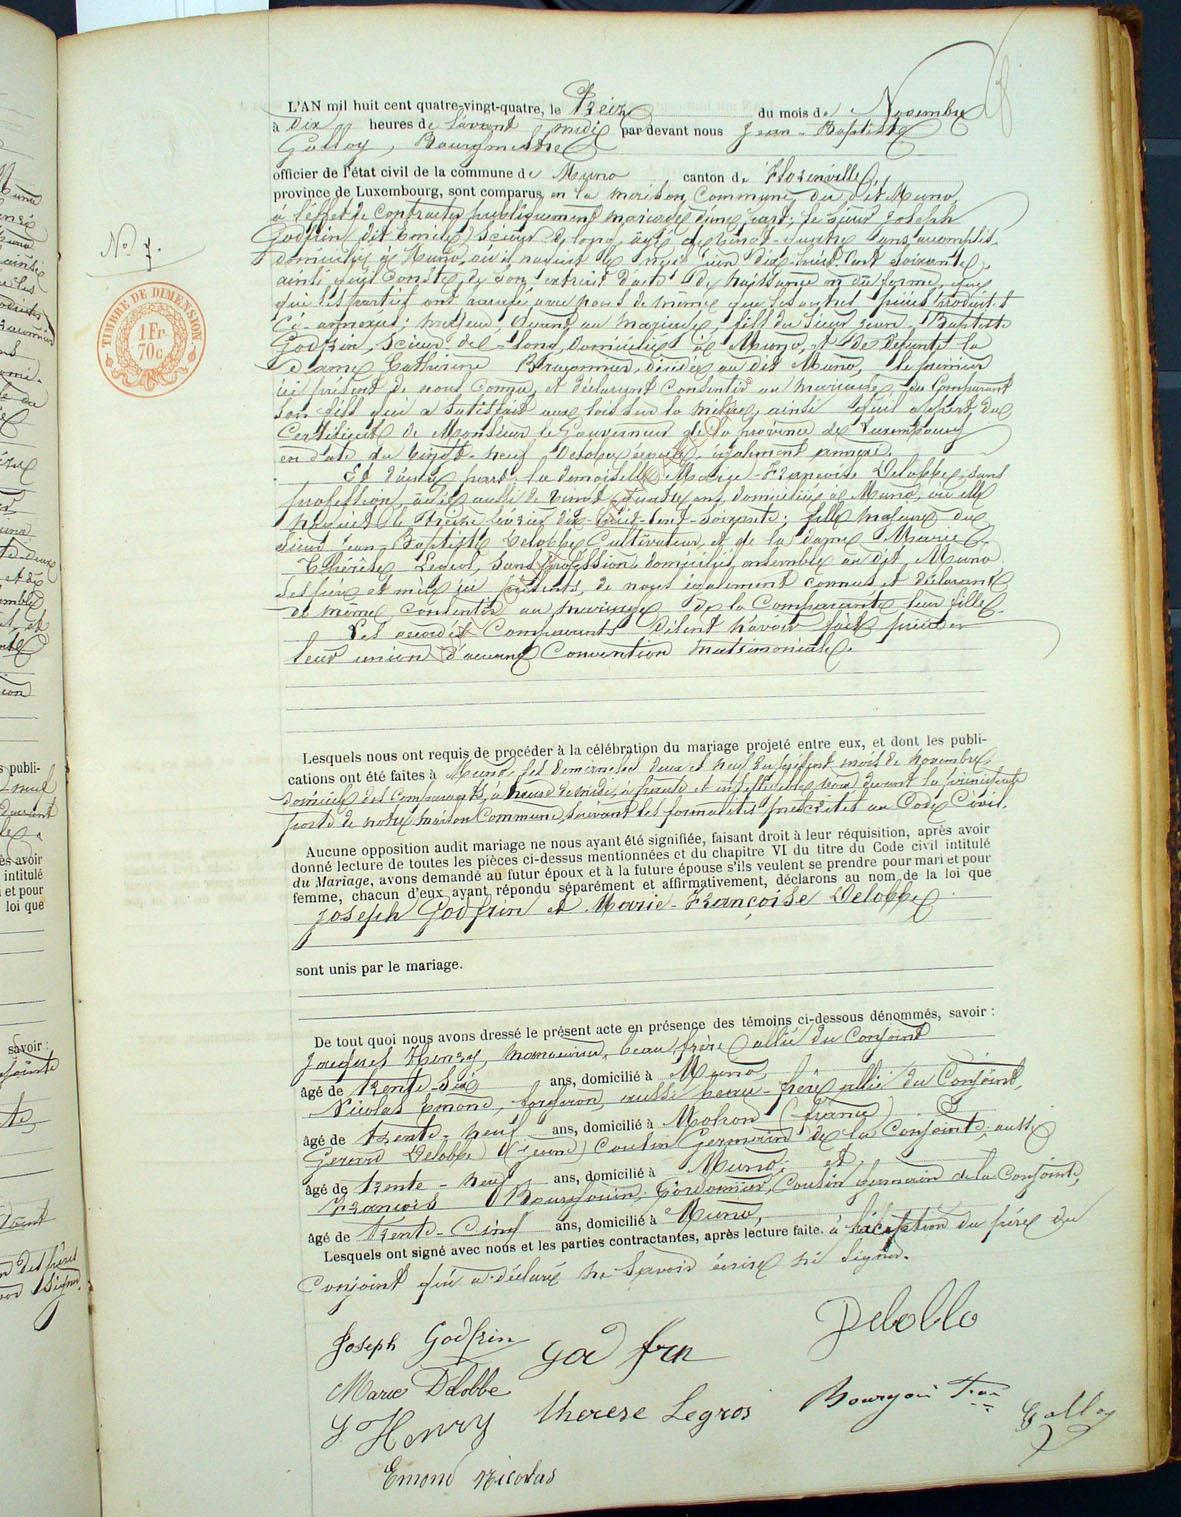 L'AN mil huit cent quatre-vingt-quatre, le Treize du mois de Novembre
à Dix heures de l'avant midi par devant nous Jean-Baptiste
Galloy, Bourgmestre
officier de l'état civil de la commune de Muno canton de Florenville,
province de Luxembourg, sont comparus en la maison Commune du dit Muno,
N° 7.
à l'effet de contracter publiquement mariage d'une part; le sieur Joseph
Godfrin dit Emile, Scieur de long, âgé de vingt-quatre ans accomplis
domicilié à Muno, où il naquit le dix-huit cent soixante,
ainsi qu'il conste de son extrait d'acte de naissance en due forme,
que les parties ont avec nous de même que les autres pièces produites
TIMBRE DE DIMENSION
1 Fr.
70c
Ci-annexées; majeur, quant au mariage, fils du Sieur Jean-Baptiste
Godfrin, Scieur de long, domicilié à Muno, et de défunte la
Dame Catherine décédée au dit Muno, le premier
ici présent de nous connu, et déclarant consentir au mariage du Comparant
son fils qui a satisfait aux lois sur la milice, ainsi qu'il appert du
Certificat de Monsieur le Gouverneur de la province de Luxembourg
en date du vingt-neuf également annexé.
Et d'autre part la demoiselle Marie-Françoise Delobbe, sans
profession, âgée aussi de vingt quatre ans, domiciliée à Muno, où elle
naquit le treize février dix-huit-cent-soixante; fille majeure du
Sieur Jean-Baptiste Delobbe Cultivateur, et de la dame Marie-
Thérèse Legros, sans profession, domiciliés ensemble au dit Muno,
ses père et mère ici présents, de nous également connus et déclarant
de même consentir au mariage de la Comparante leur fille.
Les Comparants disent n'avoir fait précéder
leur union d'aucune Convention matrimoniale.
Lesquels nous ont requis de procéder à la célébration du mariage projeté entre eux, et dont les publi-
cations ont été faites à Muno, les dimanches deux et neuf du présent mois de novembre,
domicile des Comparants, à heure de midi, devant la principale
porte de notre maison Commune, suivant les formalités prescrites au Code Civil.
Aucune opposition audit mariage ne nous ayant été signifiée, faisant droit à leur réquisition, après avoir
donné lecture de toutes les pièces ci-dessus mentionnées et du chapitre VI du titre du Code civil intitulé
du Mariage, avons demandé au futur époux et à la future épouse s'ils veulent se prendre pour mari et pour
femme, chacun d'eux ayant répondu séparément et affirmativement, déclarons au nom de la loi que
Joseph Godfrin et Marie-Françoise Delobbe
sont unis par le mariage.
De tout quoi nous avons dressé le présent acte en présence des témoins ci-dessous dénommés, savoir :
Jacques Henry, manœuvre, beau frère allié du Conjoint
âgé de trente-six ans, domicilié à Muno,
Nicolas Emond, forgeron, aussi beau-frère allié du Conjoint,
âgé de trente-neuf ans, domicilié à Mohon (France)
Gérard Delobbe (jeune) Cousin Germain de la Conjointe, aussi
âgé de trente-neuf ans, domicilié à Muno; et
François Bourgouin, Cordonnier, Cousin germain de la Conjointe,
âgé de trente-cinq ans, domicilié à Muno,
Lesquels ont signé avec nous et les parties contractantes, après lecture faite. à l'exception du père du
Conjoint qui a déclaré ne savoir écrire ni signer.
Joseph Godfrin
God frn
Delobbe
Marie Delobbe
J Henry
therese Legros
Bourgoin Fran
Galloy
Emond Nicolas